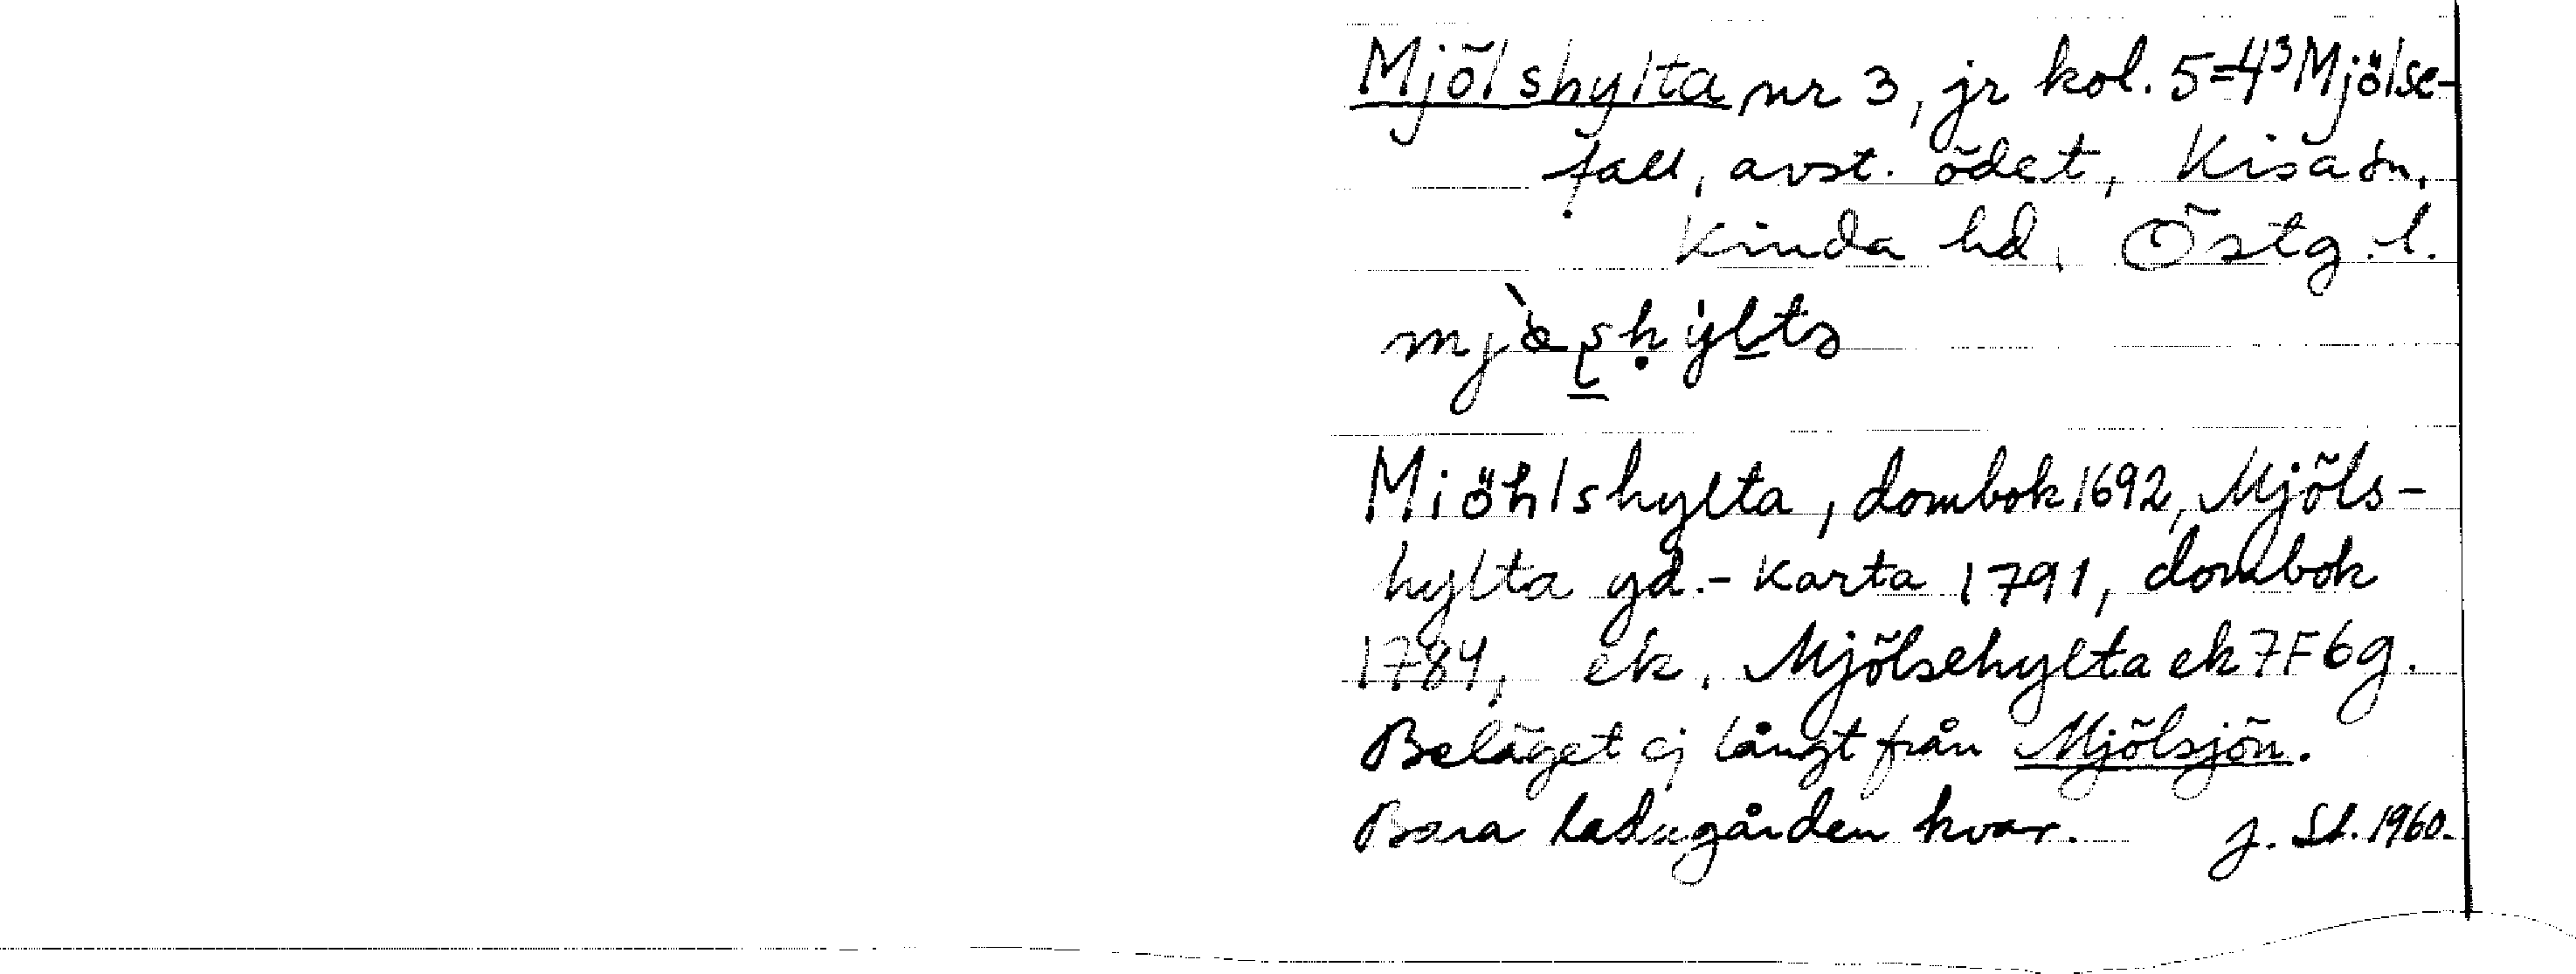 Mjölshylta nr 3, jr kol. 5=4³ Mjölse-
fall, avst. ödet, Kisa sn,
Kinda hd, Östg. l.
Miöhlshylta, dombok 1692, Mjöls-
hylta gd.- karta 1791, dombok
1784, ek. Mjölsehylta ek 7F6g.
Beläget ej långt från Mjölsjön.
Bara ladugården kvar. J. Sl. 1960.